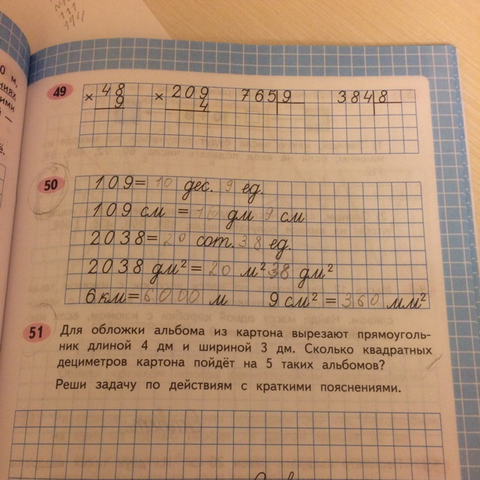 0 м,
49 × 48 × 209 765|9 384|8
9 4
50 109 = 10 дес. 9 ед.
109 см = 10 дм 9 см
2038 = 20 сот. 38 ед.
2038 дм² = 20 м² 38 дм²
6 км = 6000 м 9 см² = 360 мм²
51 Для обложки альбома из картона вырезают прямоуголь-
ник длиной 4 дм и шириной 3 дм. Сколько квадратных
дециметров картона пойдёт на 5 таких альбомов?
Реши задачу по действиям с краткими пояснениями.